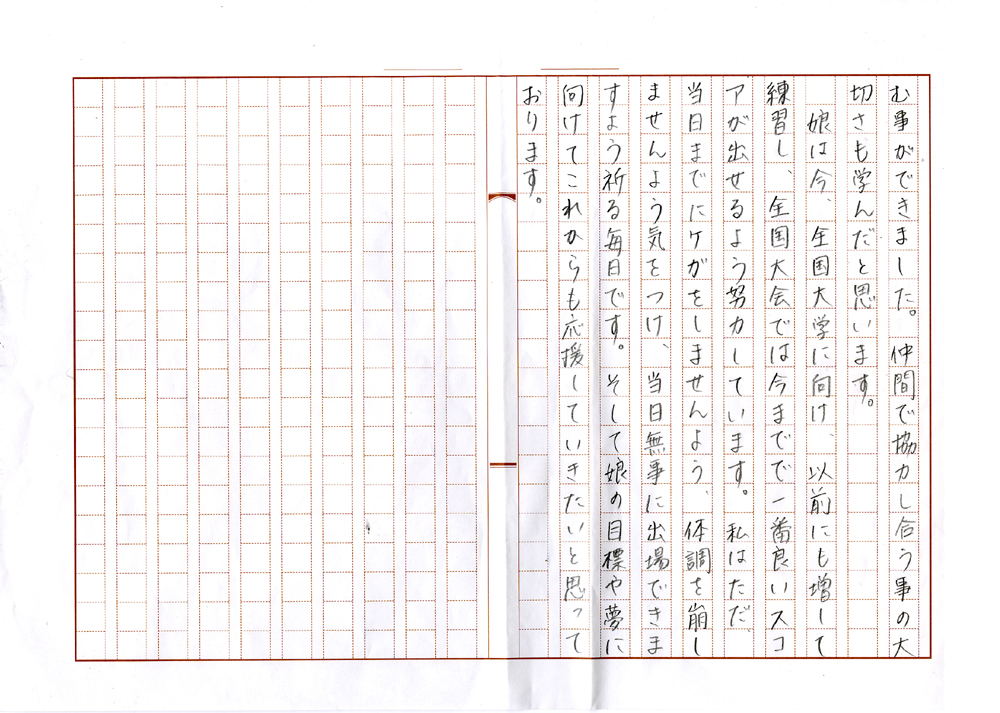 む事ができました。仲間で協力し合う事の大
切さも学んだと思います。
娘は今、全国大学に向け、以前にも増して
練習し、全国大会では今までで一番良いスコ
アが出せるよう努力しています。私はただ
当日までにケガをしませんよう、体調を崩し
ませんよう気をつけ、当日無事に出場できま
すよう祈る毎日です。そして娘の目標や夢に
向けてこれからも応援していきたいと思って
おります。